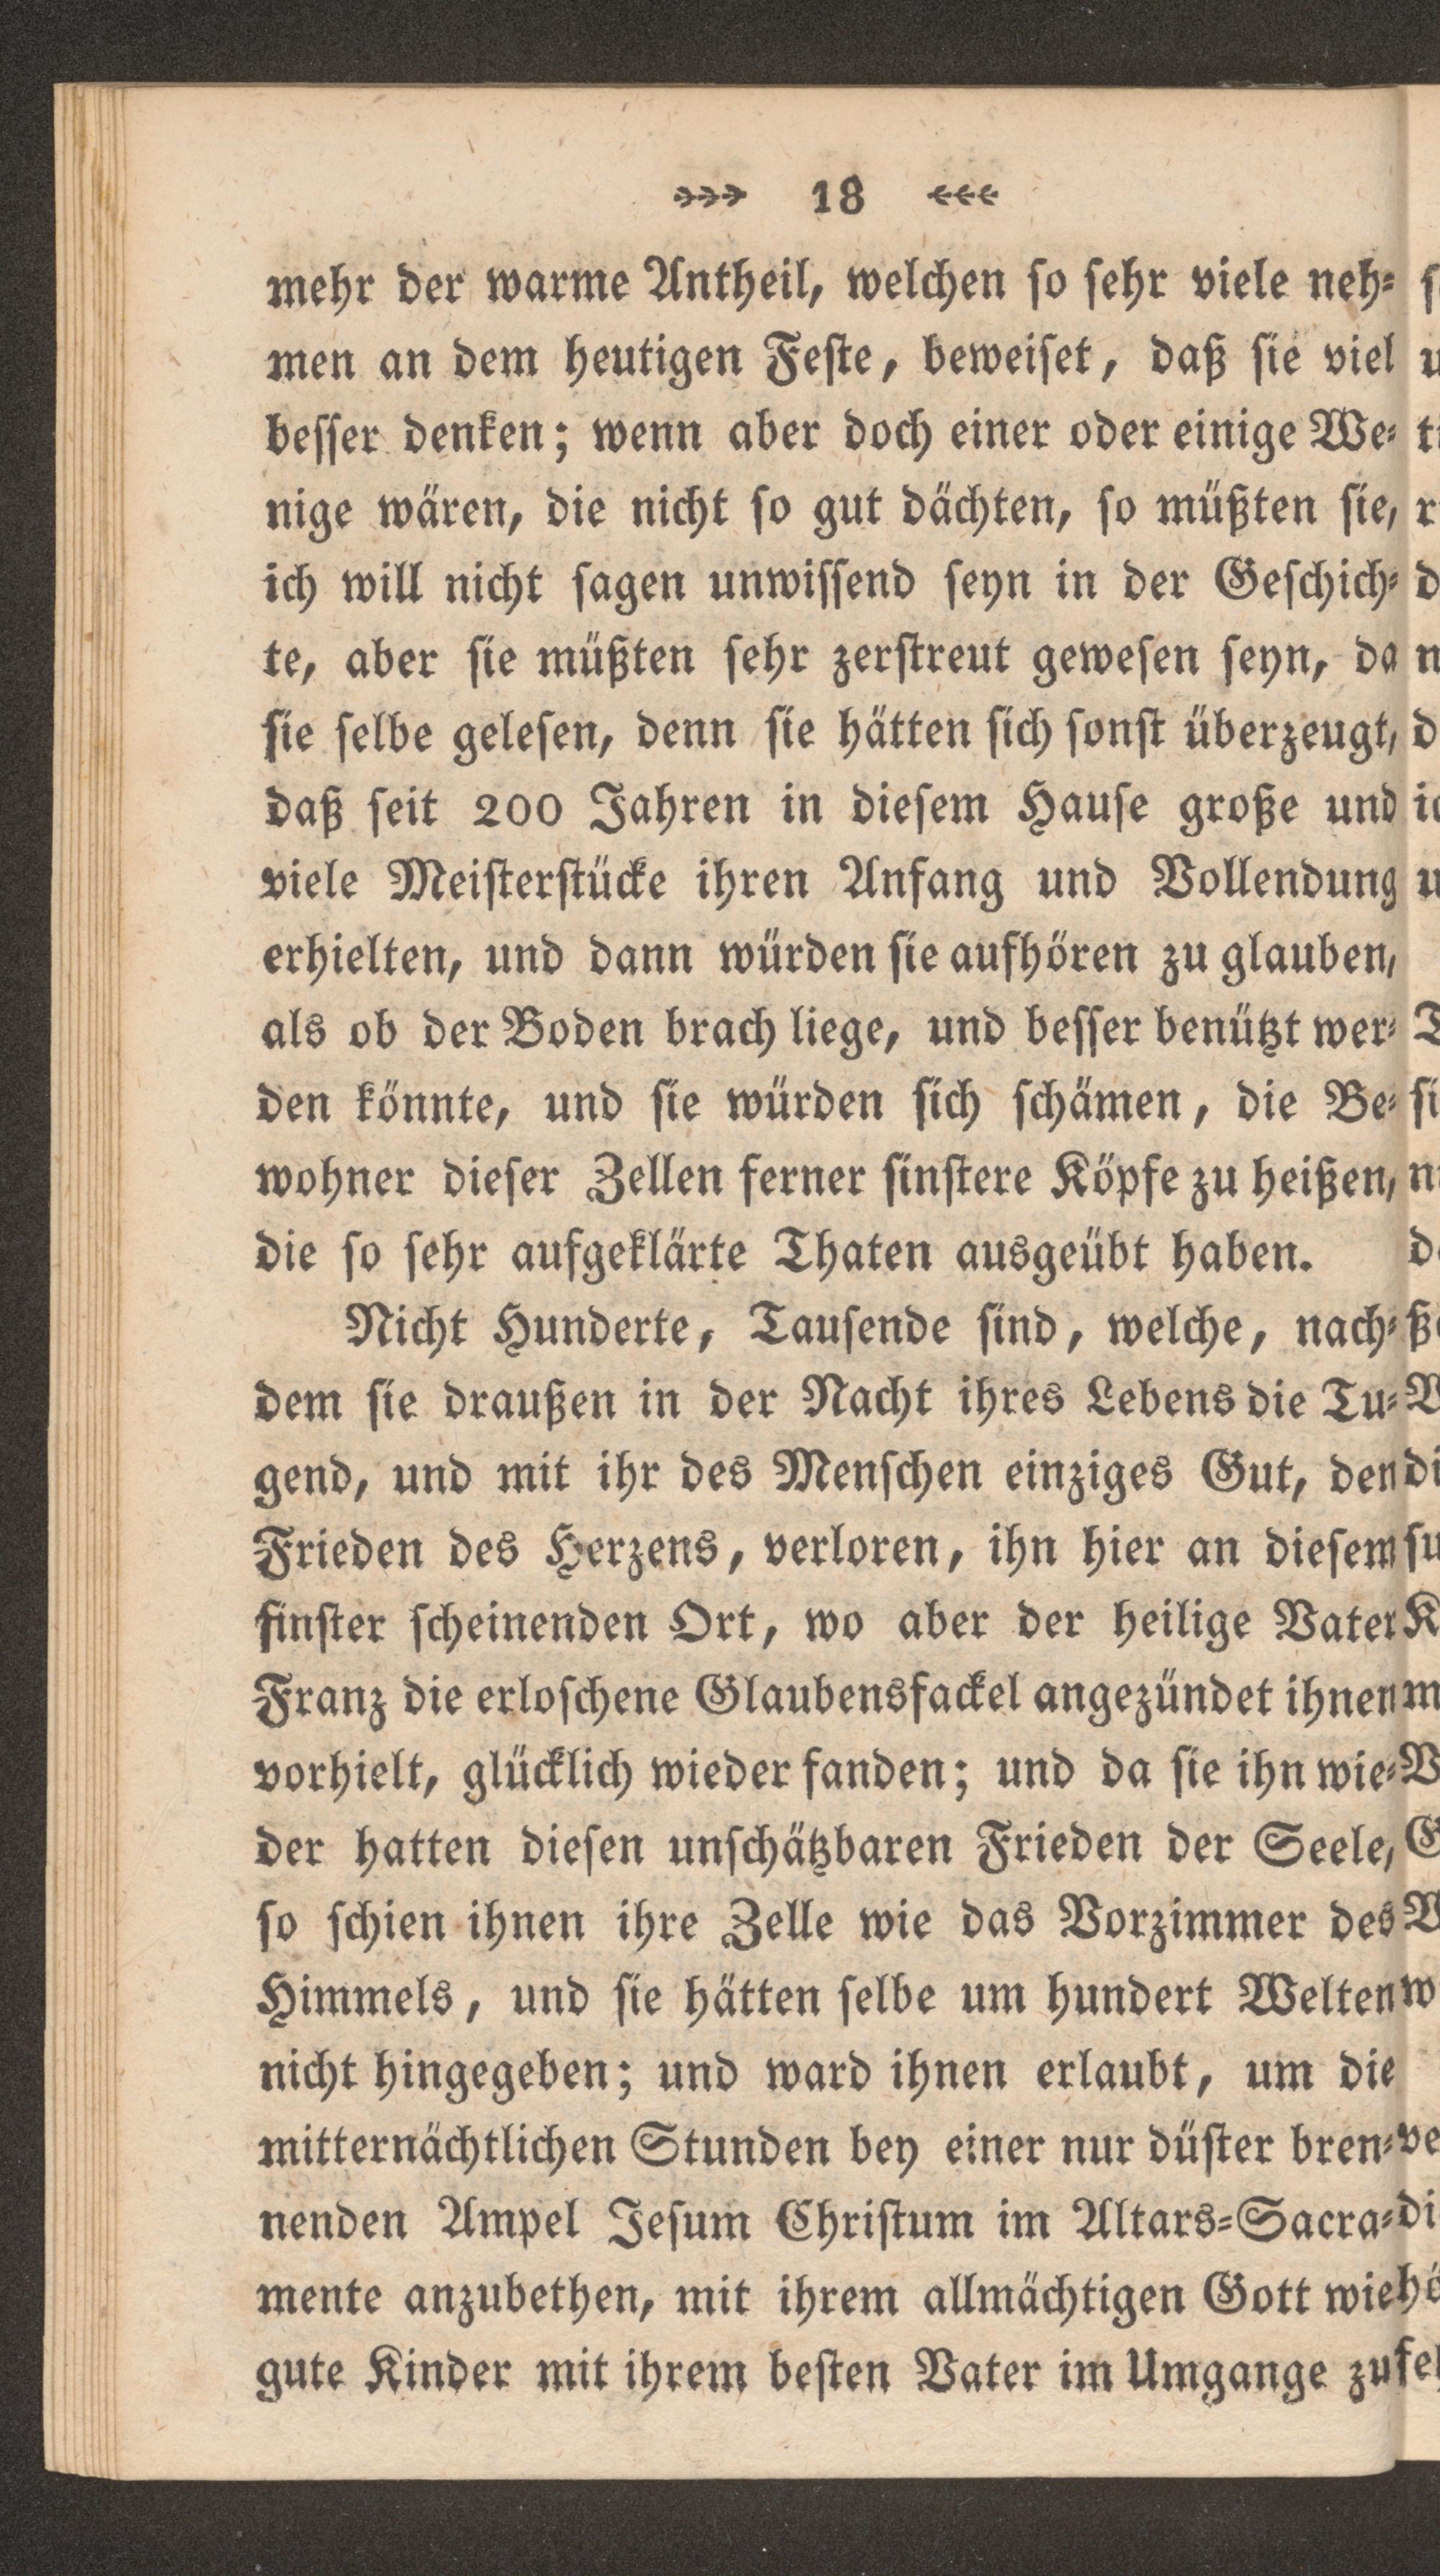 18
mehr der warme Antheil, welchen so sehr viele neh-
men an dem heutigen Feste, beweiset, daß sie viel
besser denken; wenn aber doch einer oder einige We-
nige wären, die nicht so gut dächten, so müßten sie,
ich will nicht sagen unwissend seyn in der Geschich-
te, aber sie müßten sehr zerstreut gewesen seyn, da
sie selbe gelesen, denn sie hätten sich sonst überzeugt,
daß seit 200 Jahren in diesem Hause große und
viele Meisterstücke ihren Anfang und Vollendung
erhielten, und dann würden sie aufhören zu glauben,
als ob der Boden brach liege, und besser benützt wer-
den könnte, und sie würden sich schämen, die Be-
wohner dieser Zellen ferner finstere Köpfe zu heißen,
die so sehr aufgeklärte Thaten ausgeübt haben.
Nicht Hunderte, Tausende sind, welche, nach-
dem sie draußen in der Nacht ihres Lebens die Tu-
gend, und mit ihr des Menschen einziges Gut, den
Frieden des Herzens, verloren, ihn hier an diesem
finster scheinenden Ort, wo aber der heilige Vater
Franz die erloschene Glaubensfackel angezündet ihnen
vorhielt, glücklich wieder fanden; und da sie ihn wie-
der hatten diesen unschätzbaren Frieden der Seele,
so schien ihnen ihre Zelle wie das Vorzimmer des
Himmels, und sie hätten selbe um hundert Welten
nicht hingegeben; und ward ihnen erlaubt, um die
mitternächtlichen Stunden bey einer nur düster bren-
nenden Ampel Jesum Christum im Altars-Sacra-
mente anzubethen, mit ihrem allmächtigen Gott wie
gute Kinder mit ihrem besten Vater im Umgange zu